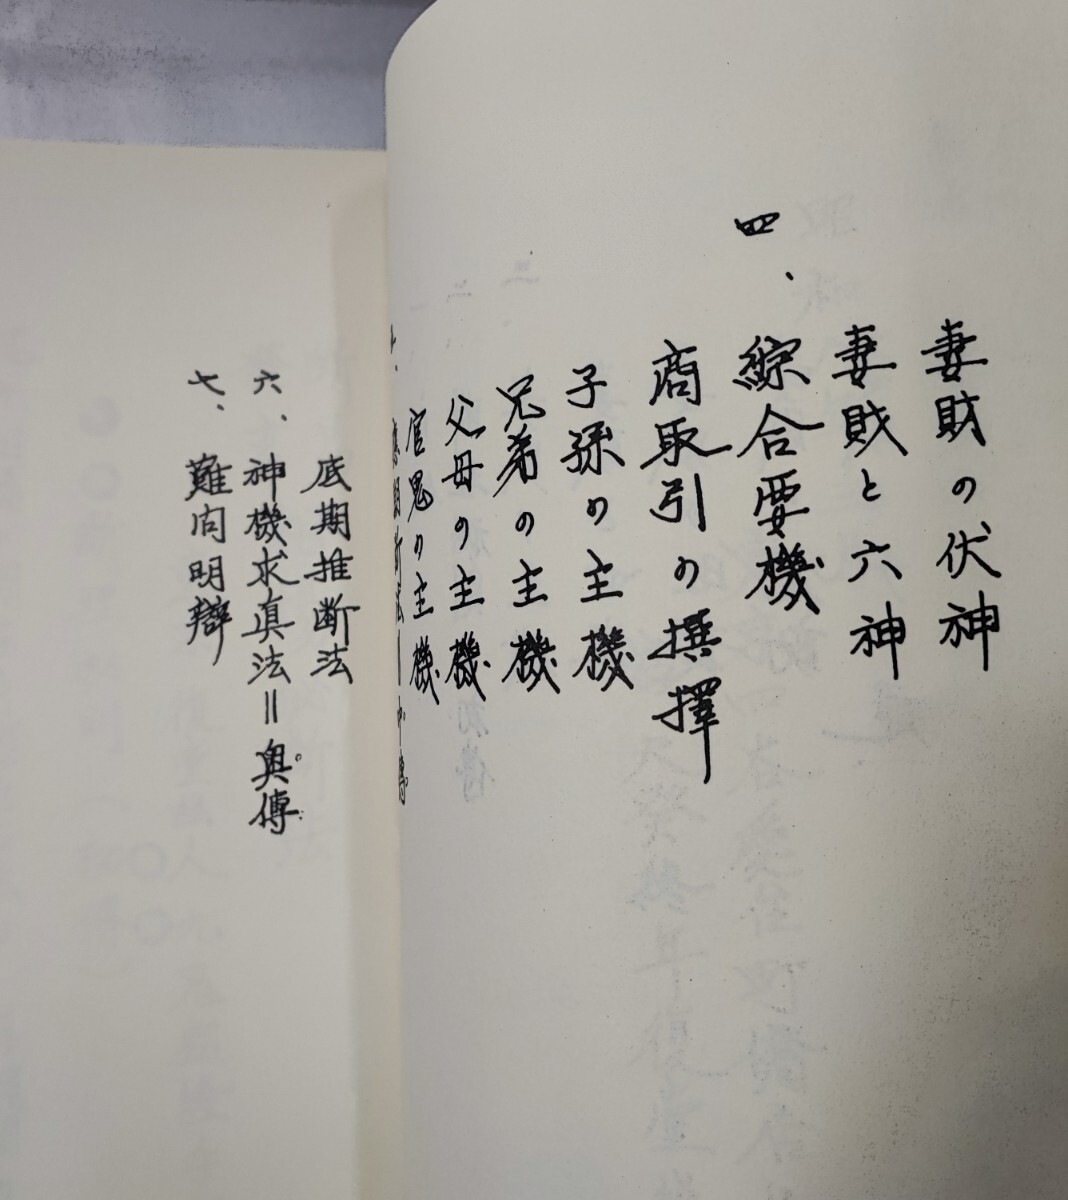 妻財の伏神
妻財と六神
四、綜合要機
商取引の撰擇
子孫の主機
兄弟の主機
父母の主機
官鬼の主機
底期推断法
六、神機求真法＝奥傳
七、難向明辯